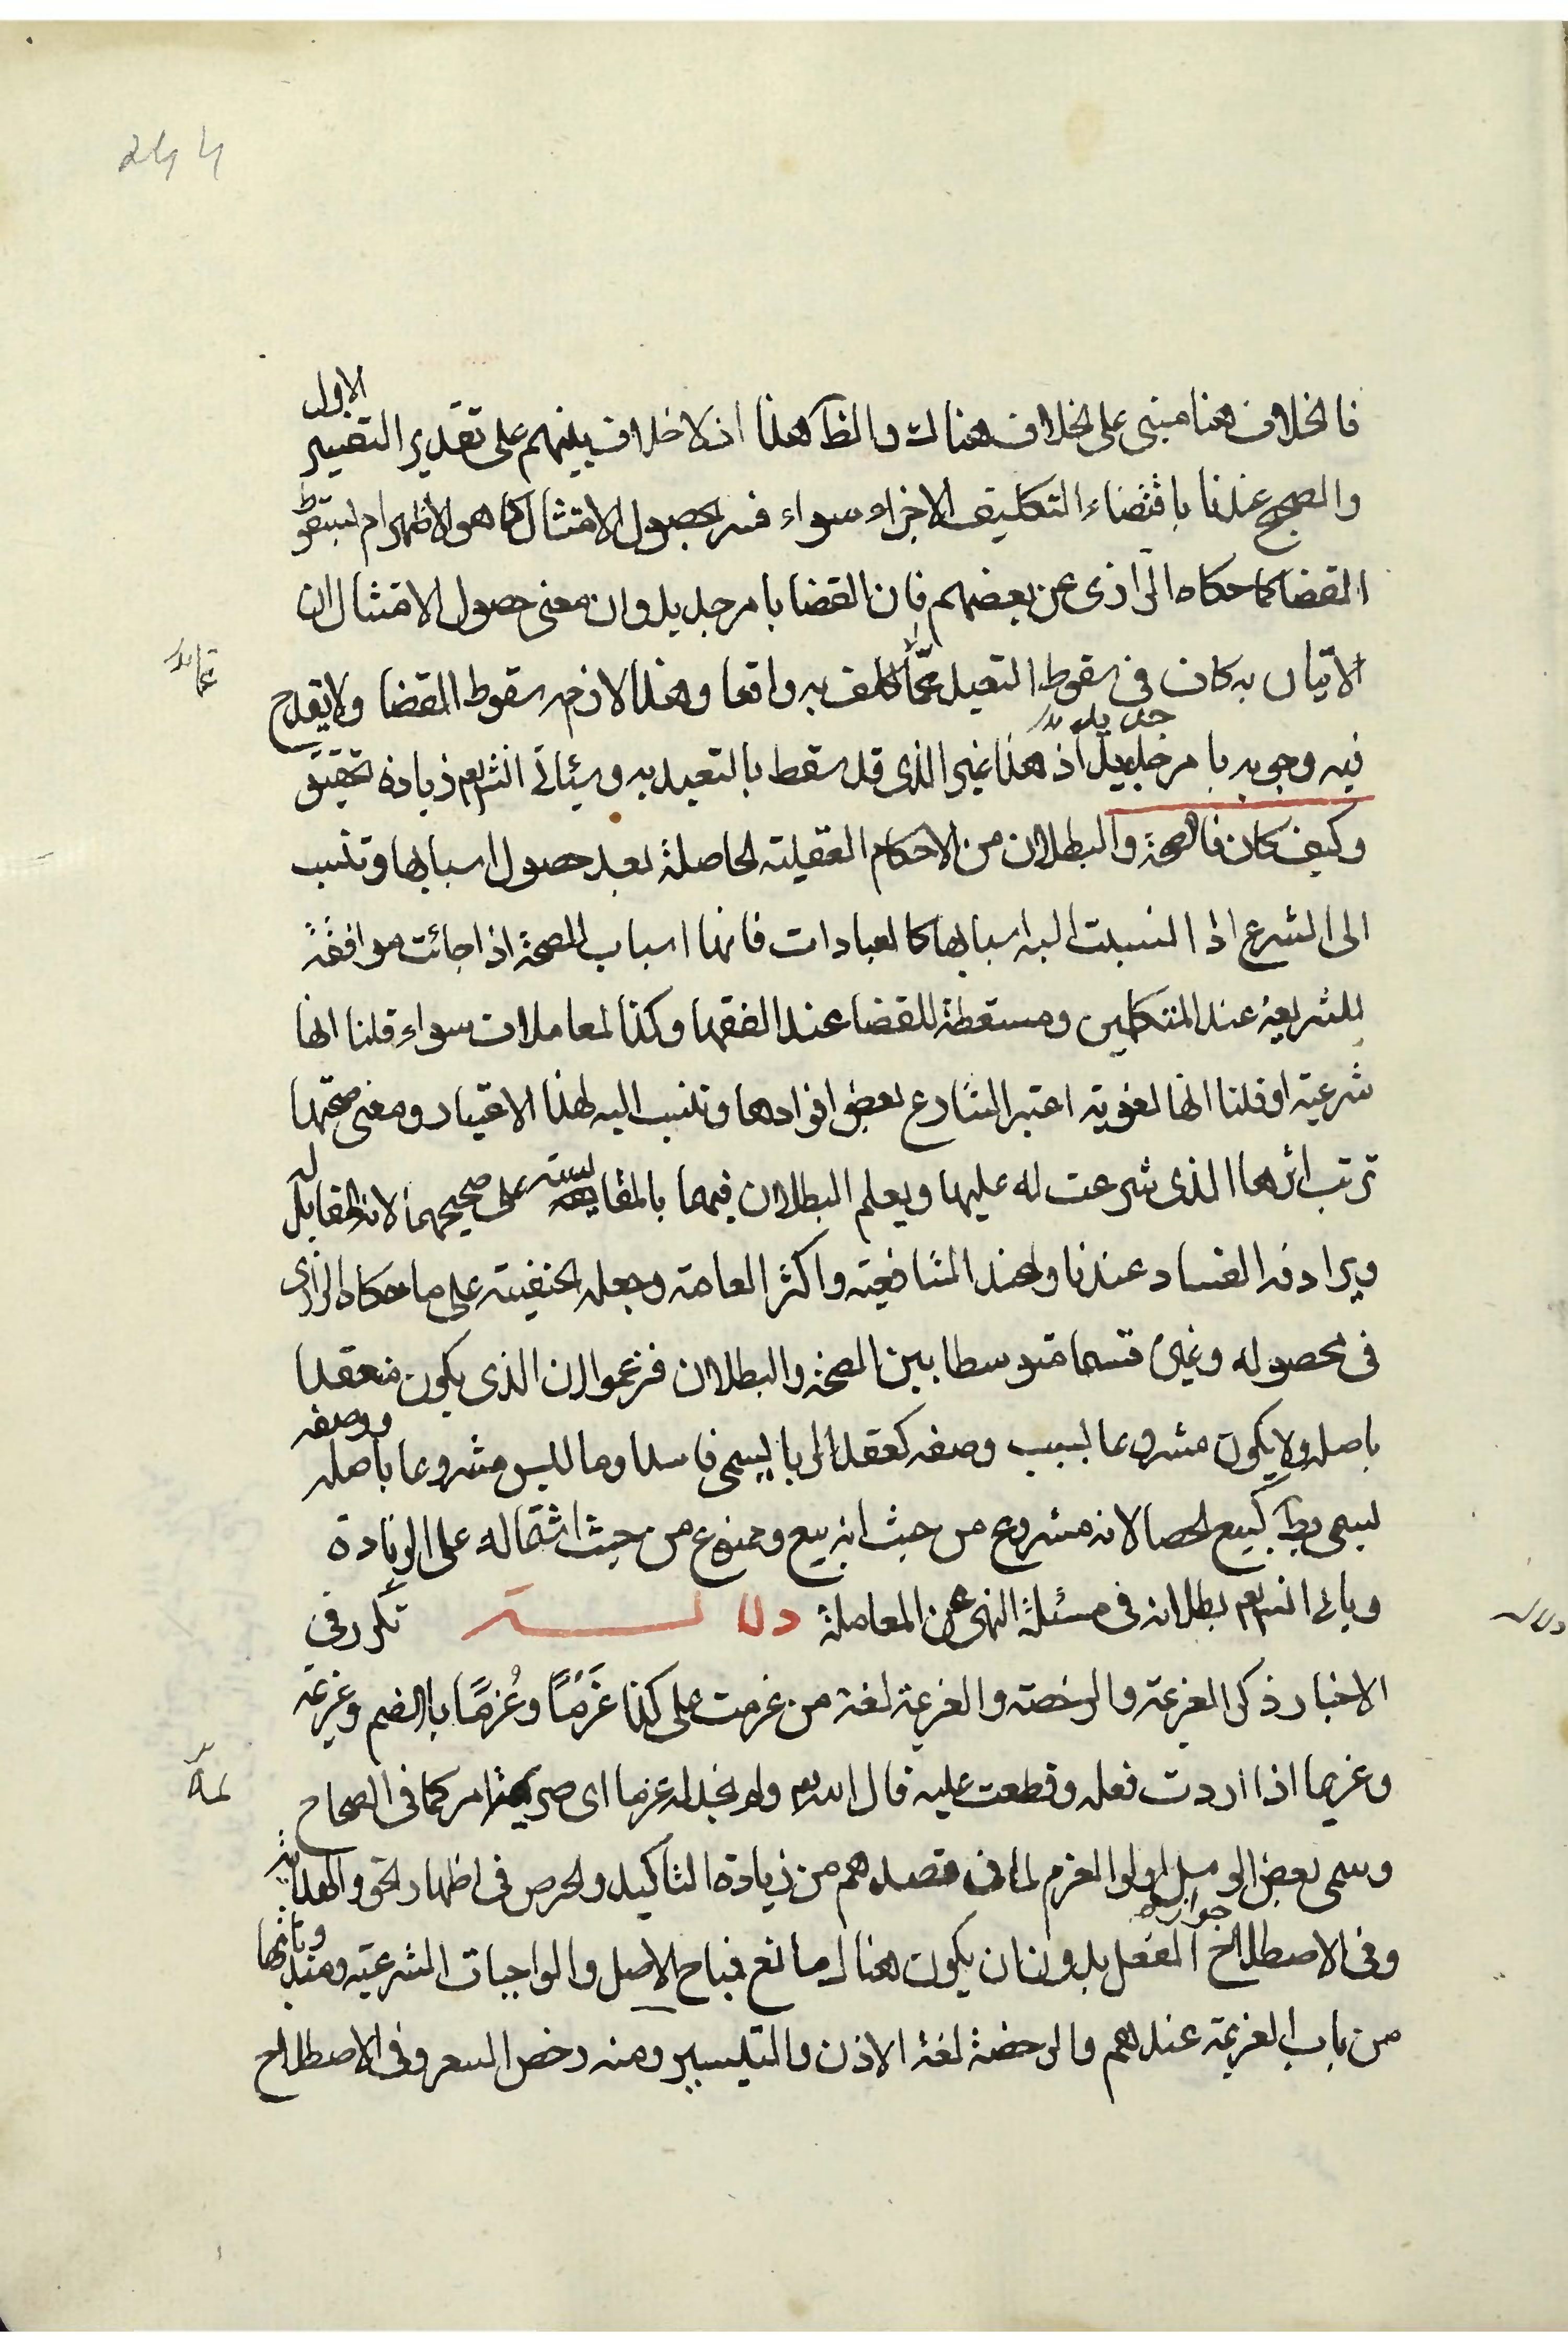 ۲۴۴
الاول
فالخلاف هنا مبنى على الخلاف هناك والظ كهذا اذ لا خلاف بينهم على تقدير التفسير
والصحيح عندنا باقتضاء التكليف الاجزاء سواء فسر بحصول الامتثال كما هو الاظهر ام بسقوط
القضا كما حكاه الرازى عن بعضهم فان القضا بامر جديد وان معنى حصول الامتثال ان
الاتيان به كاف فى سقوط التعبد عما كلف به واقعا وهذا لازمه سقوط القضا ولا يقدح
جديد
فيه وجوبه بامر جديد اذ هذا غير الذى قد سقط بالتعبد به وسيأتى انش تعم زيادة تحقيق
وكيف كان فالصحة والبطلان من الاحكام العقلية الحاصلة بعد حصول اسبابها وتنسب
الى الشرع اذا انسبت اليه اسبابها كالعبادات فانها اسباب الصحة اذا جائت موافقة
للشريعة عند المتكلمين ومسقطة للقضا عند الفقها وكذا المعاملات سواء قلنا انها
شرعية او قلنا انها لغوية اعتبر الشارع بعض افرادها وتنسب اليه لهذا الاعتبار ومعنى صحتها
ترتب اثرها الذى شرعت له عليها ويعلم البطلان فيهما بالمقايسة على صحيحهما لانه المقابل له
ويرادفه الفساد عندنا وعند الشافعية واكثر العامة وجعله الحنفية على ما حكاه الرازى
فى محصوله وغيره قسما متوسطا بين الصحة والبطلان فزعموا ان الذى يكون منعقدا
باصله ولا يكون مشروعا بسبب وصفه كعقد الربا يسمى فاسدا وما ليس مشروعا باصله ووصفه
يسمى بط كبيع الحصا لانه مشروع من حيث انه بيع وممنوع من حيث اشتماله على الزيادة
وياتى انش تعم بطلانه فى مسئلة النهى عن المعاملة دلالــــة تكرر فى
الاخبار ذكر العزيمة والرخصة والعزيمة لغة من عزمت على كذا عَزْمًا وعُزمًا بالضم وعزيمة
وعزيما اذا اردت فعله وقطعت عليه قال الله تعم ولم نجد له عزما اى صريمة امر كما فى الصحاح
وسمى بعض الرسل اولوا العزم لما فى قصدهم من زيادة التاكيد والحرص فى اظهار الحق والهداية
وفى الاصطلاح جواز الفعل بدون ان يكون هناك مانع فمباح الاصل والواجبات الشرعية ومندوباتها
من باب العزيمة عندهم والرخصة لغة الاذن والتيسير ومنه رخص السعر وفى الاصطلاح